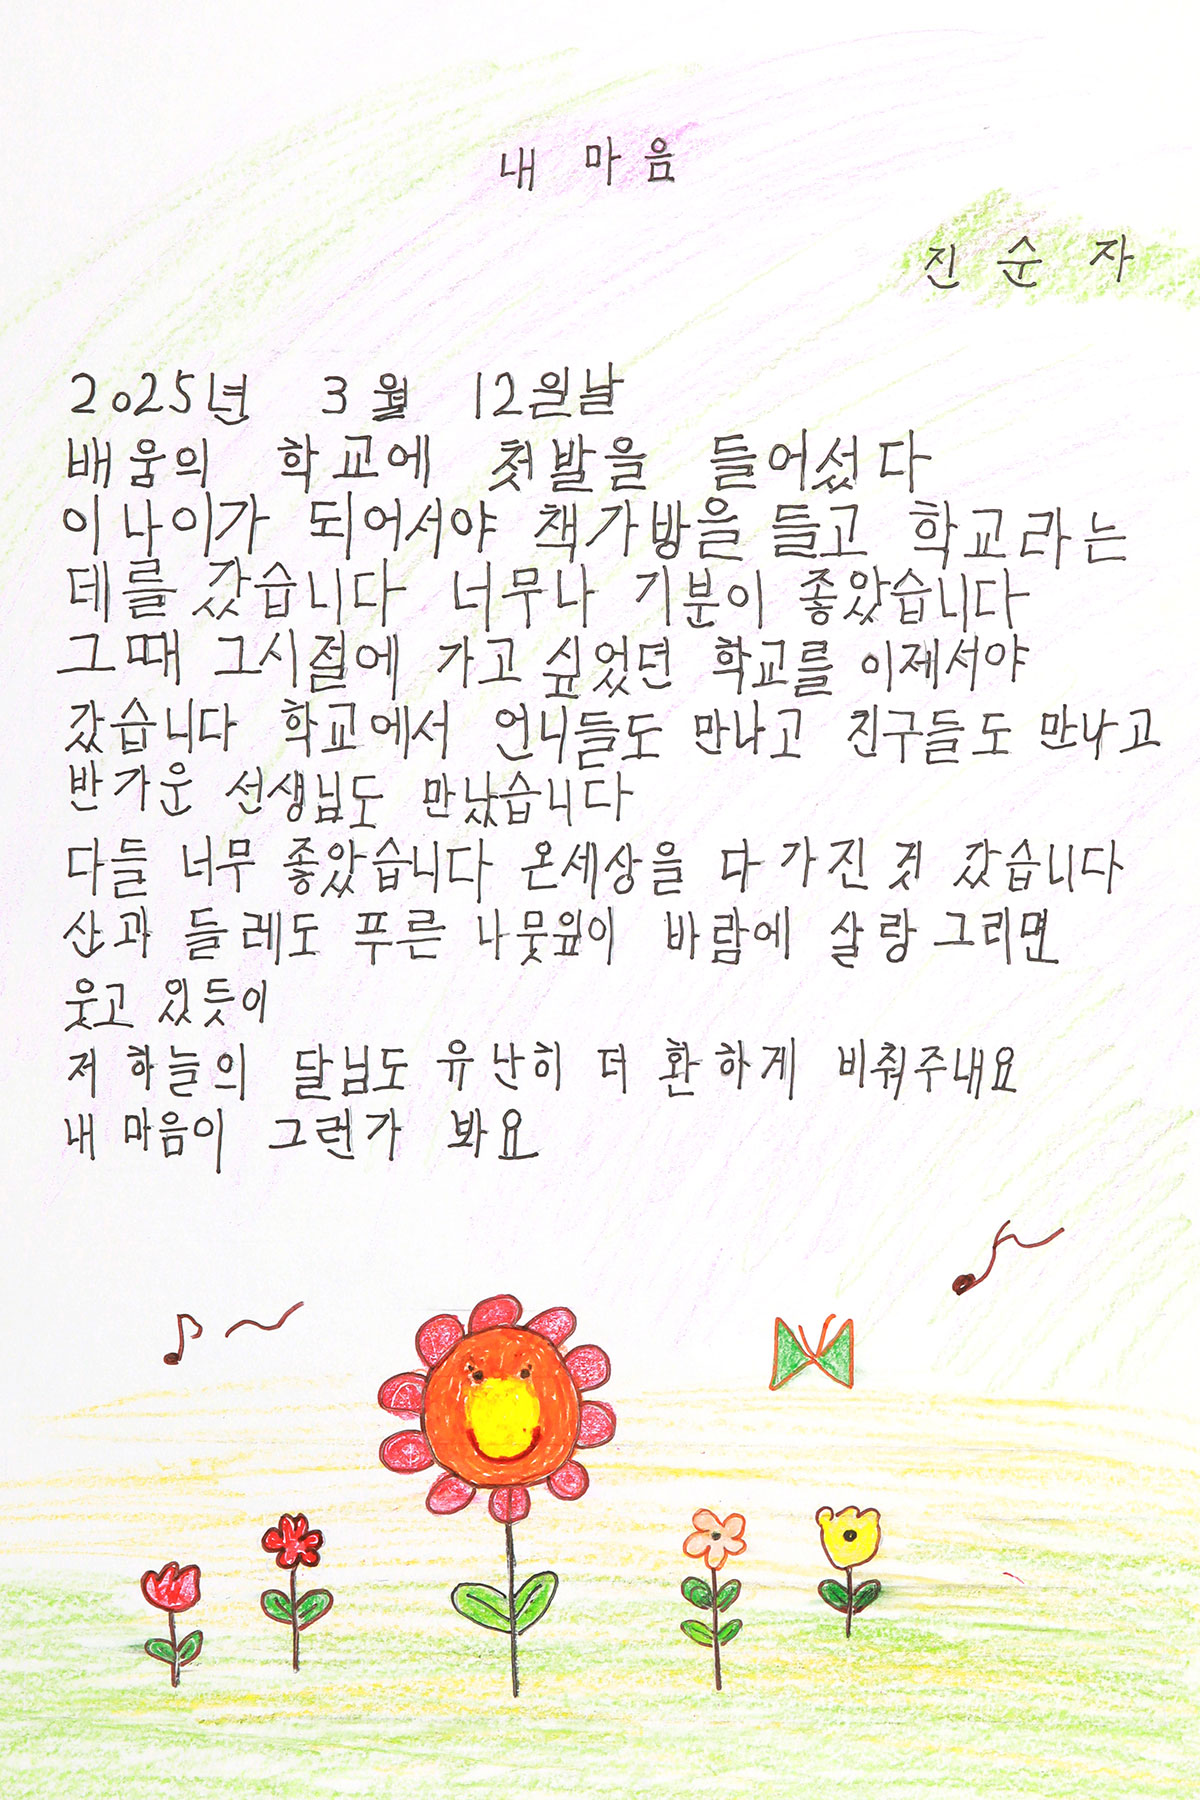 내 마음
진순자
2025년 3월 12일날
배움의 학교에 첫발을 들어섰다
이 나이가 되어서야 책가방을 들고 학교라는
데를 갔습니다 너무나 기분이 좋았습니다
그때 그시절에 가고 싶었던 학교를 이제서야
갔습니다 학교에서 언니들도 만나고 친구들도 만나고
반가운 선생님도 만났습니다
다들 너무 좋았습니다 온세상을 다 가진 것 갔습니다
산과 들레도 푸른 나뭇잎이 바람에 살랑 그리면
웃고 있듯이
저 하늘의 달님도 유난히 더 환하게 비춰주내요
내 마음이 그런가 봐요